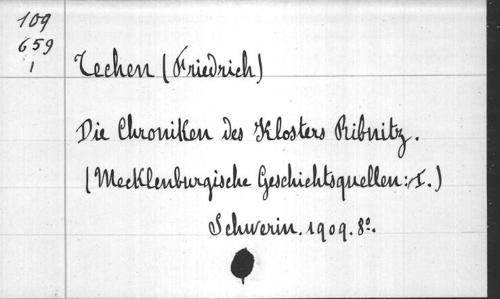 109
659
1
Techen (Friedrich)
Die Chroniken des Klosters Ribnitz.
(Mecklenburgische Geschichtsquellen: I.)
Schwerin. 1909. 8º.